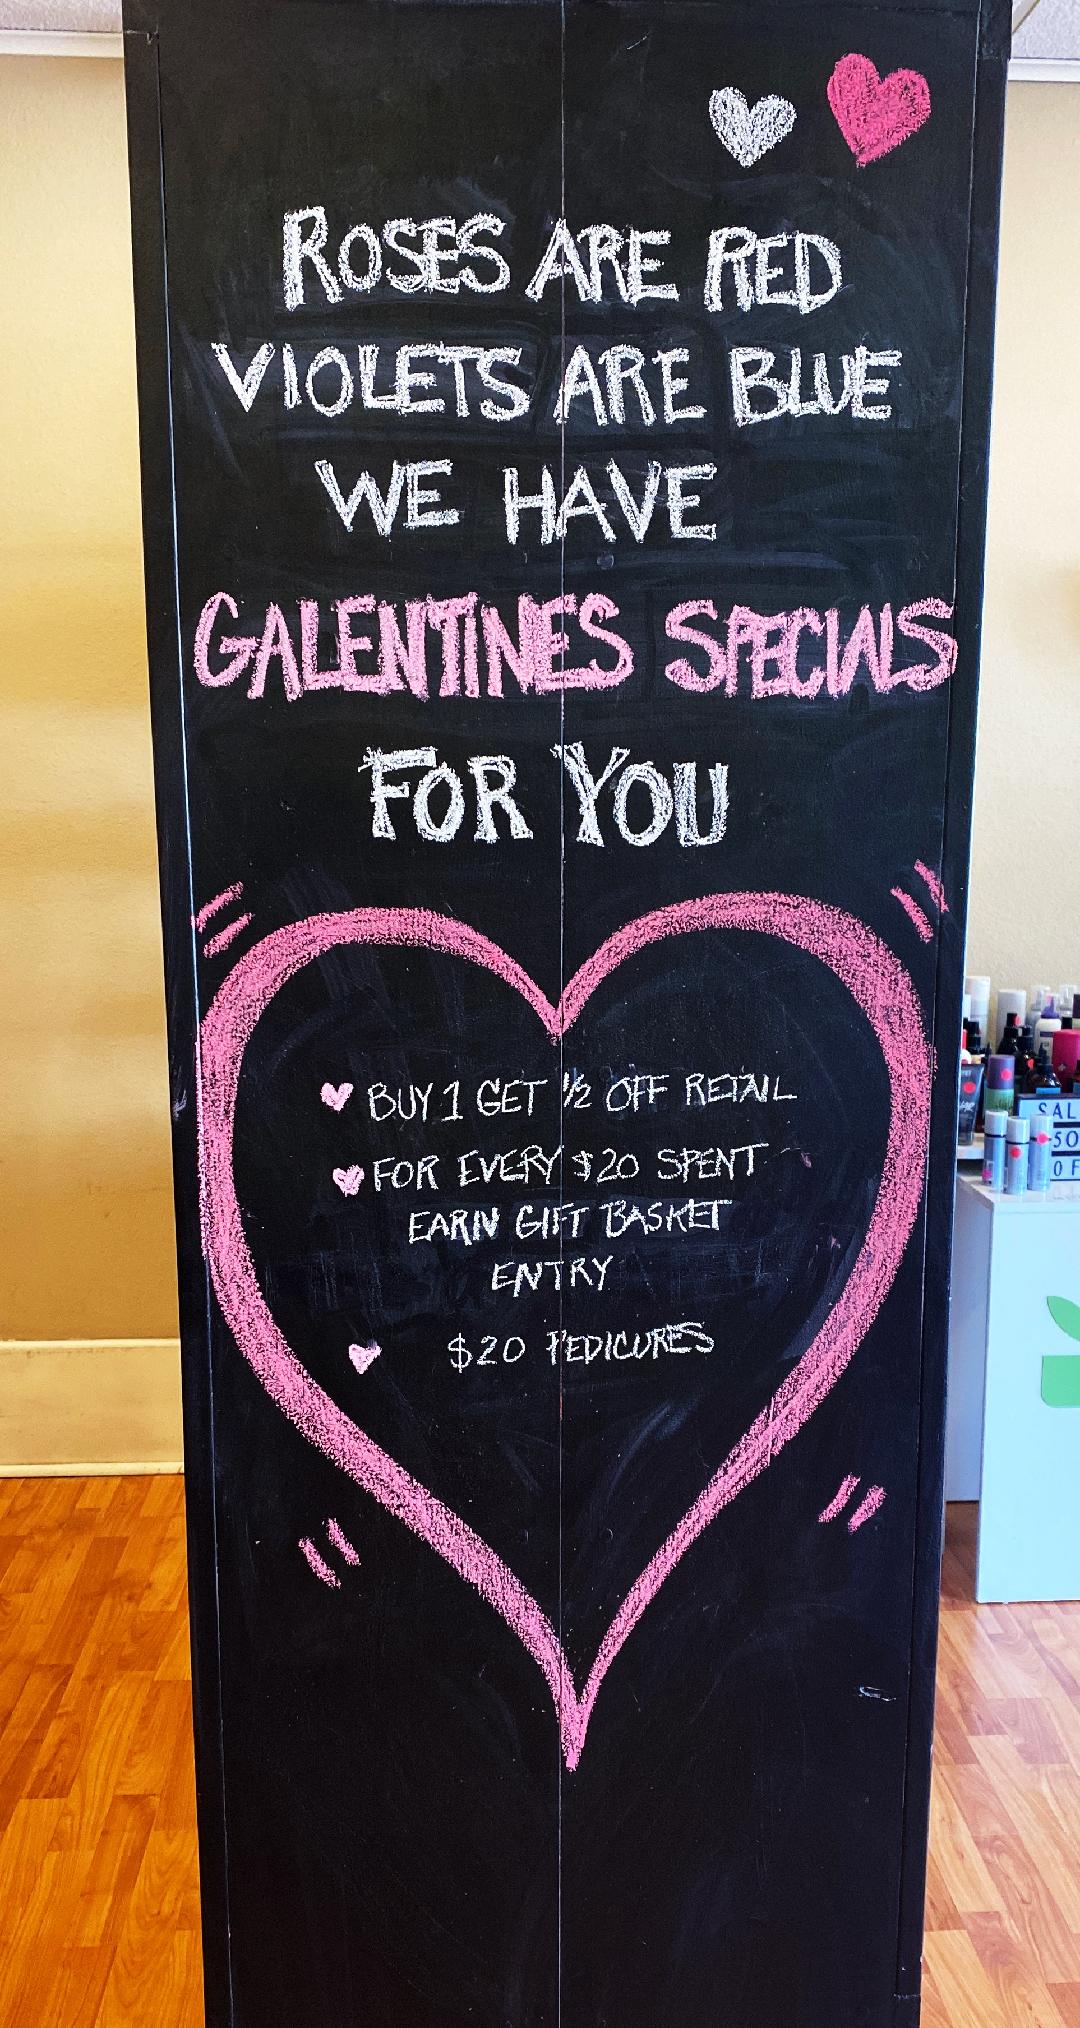 ROSES ARE RED
VIOLETS ARE BLUE
WE HAVE
GALENTINES SPECIALS
FOR YOU
BUY 1 GET ½ OFF RETAIL
FOR EVERY $20 SPENT
EARN GIFT BASKET
ENTRY
$20 PEDICURES
SAL
50
OF